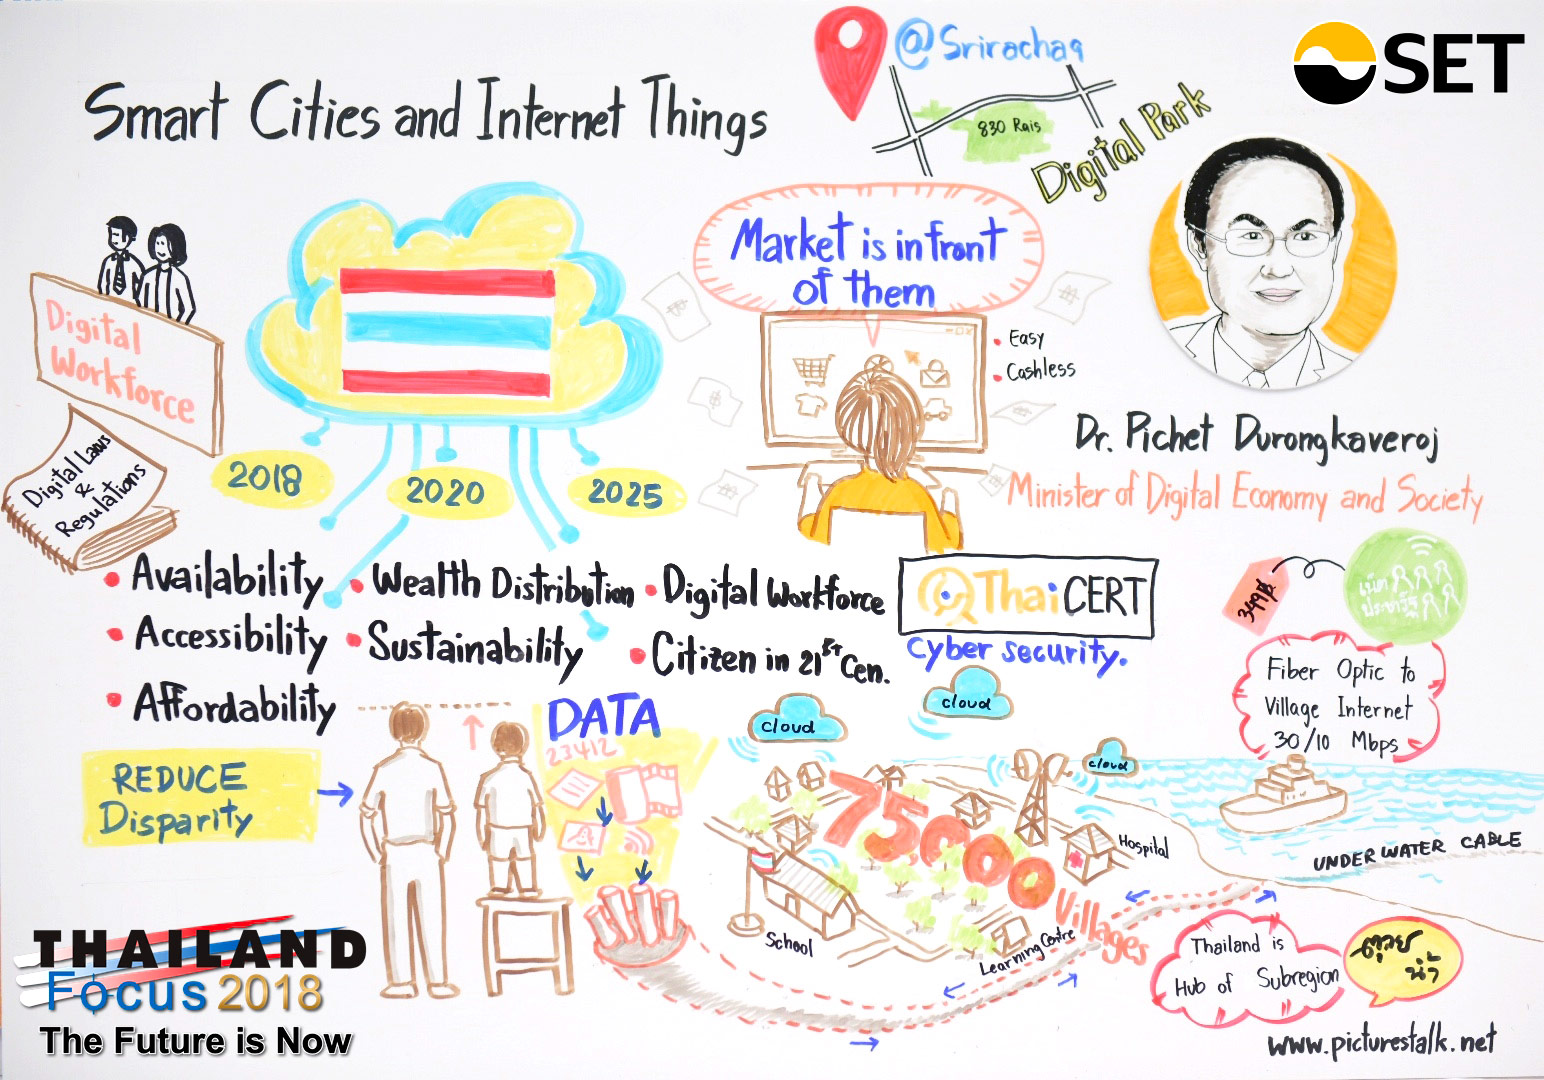 Smart Cities and Internet Things
@Srirachaq
830 Rais
Digital Park
SET
Digital
Workforce
Digital Laws
&
Regulations
2018
2020
2025
Market is in front
of them
• Easy
• Cashless
Dr. Pichet Durongkaveroj
Minister of Digital Economy and Society
• Availability
• Accessibility
• Affordability
• Wealth Distribution
• Sustainability
• Digital Workforce
• Citizen in 21st Cen.
ThaiCERT
cyber security.
349฿
เน็ต
ประชารัฐ
Fiber Optic to
Village Internet
30/10 Mbps
REDUCE
Disparity
DATA
23412
cloud
cloud
cloud
75,000
Villages
School
Hospital
Learning Centre
UNDER WATER CABLE
Thailand is
Hub of Subregion
THAILAND
Focus 2018
The Future is Now
www.picturestalk.net